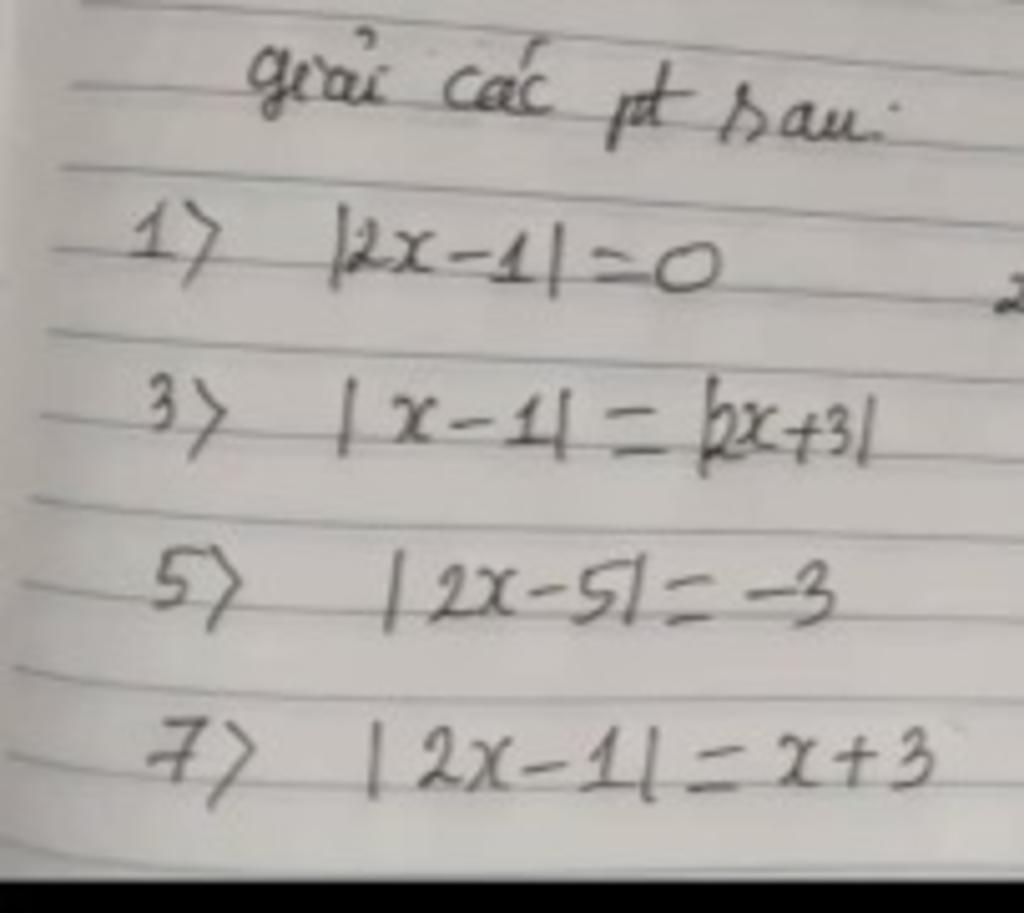 giải các pt sau:
1> |2x-1| = 0
3> |x-1| = |2x+3|
5> |2x-5| = -3
7> |2x-1| = x+3